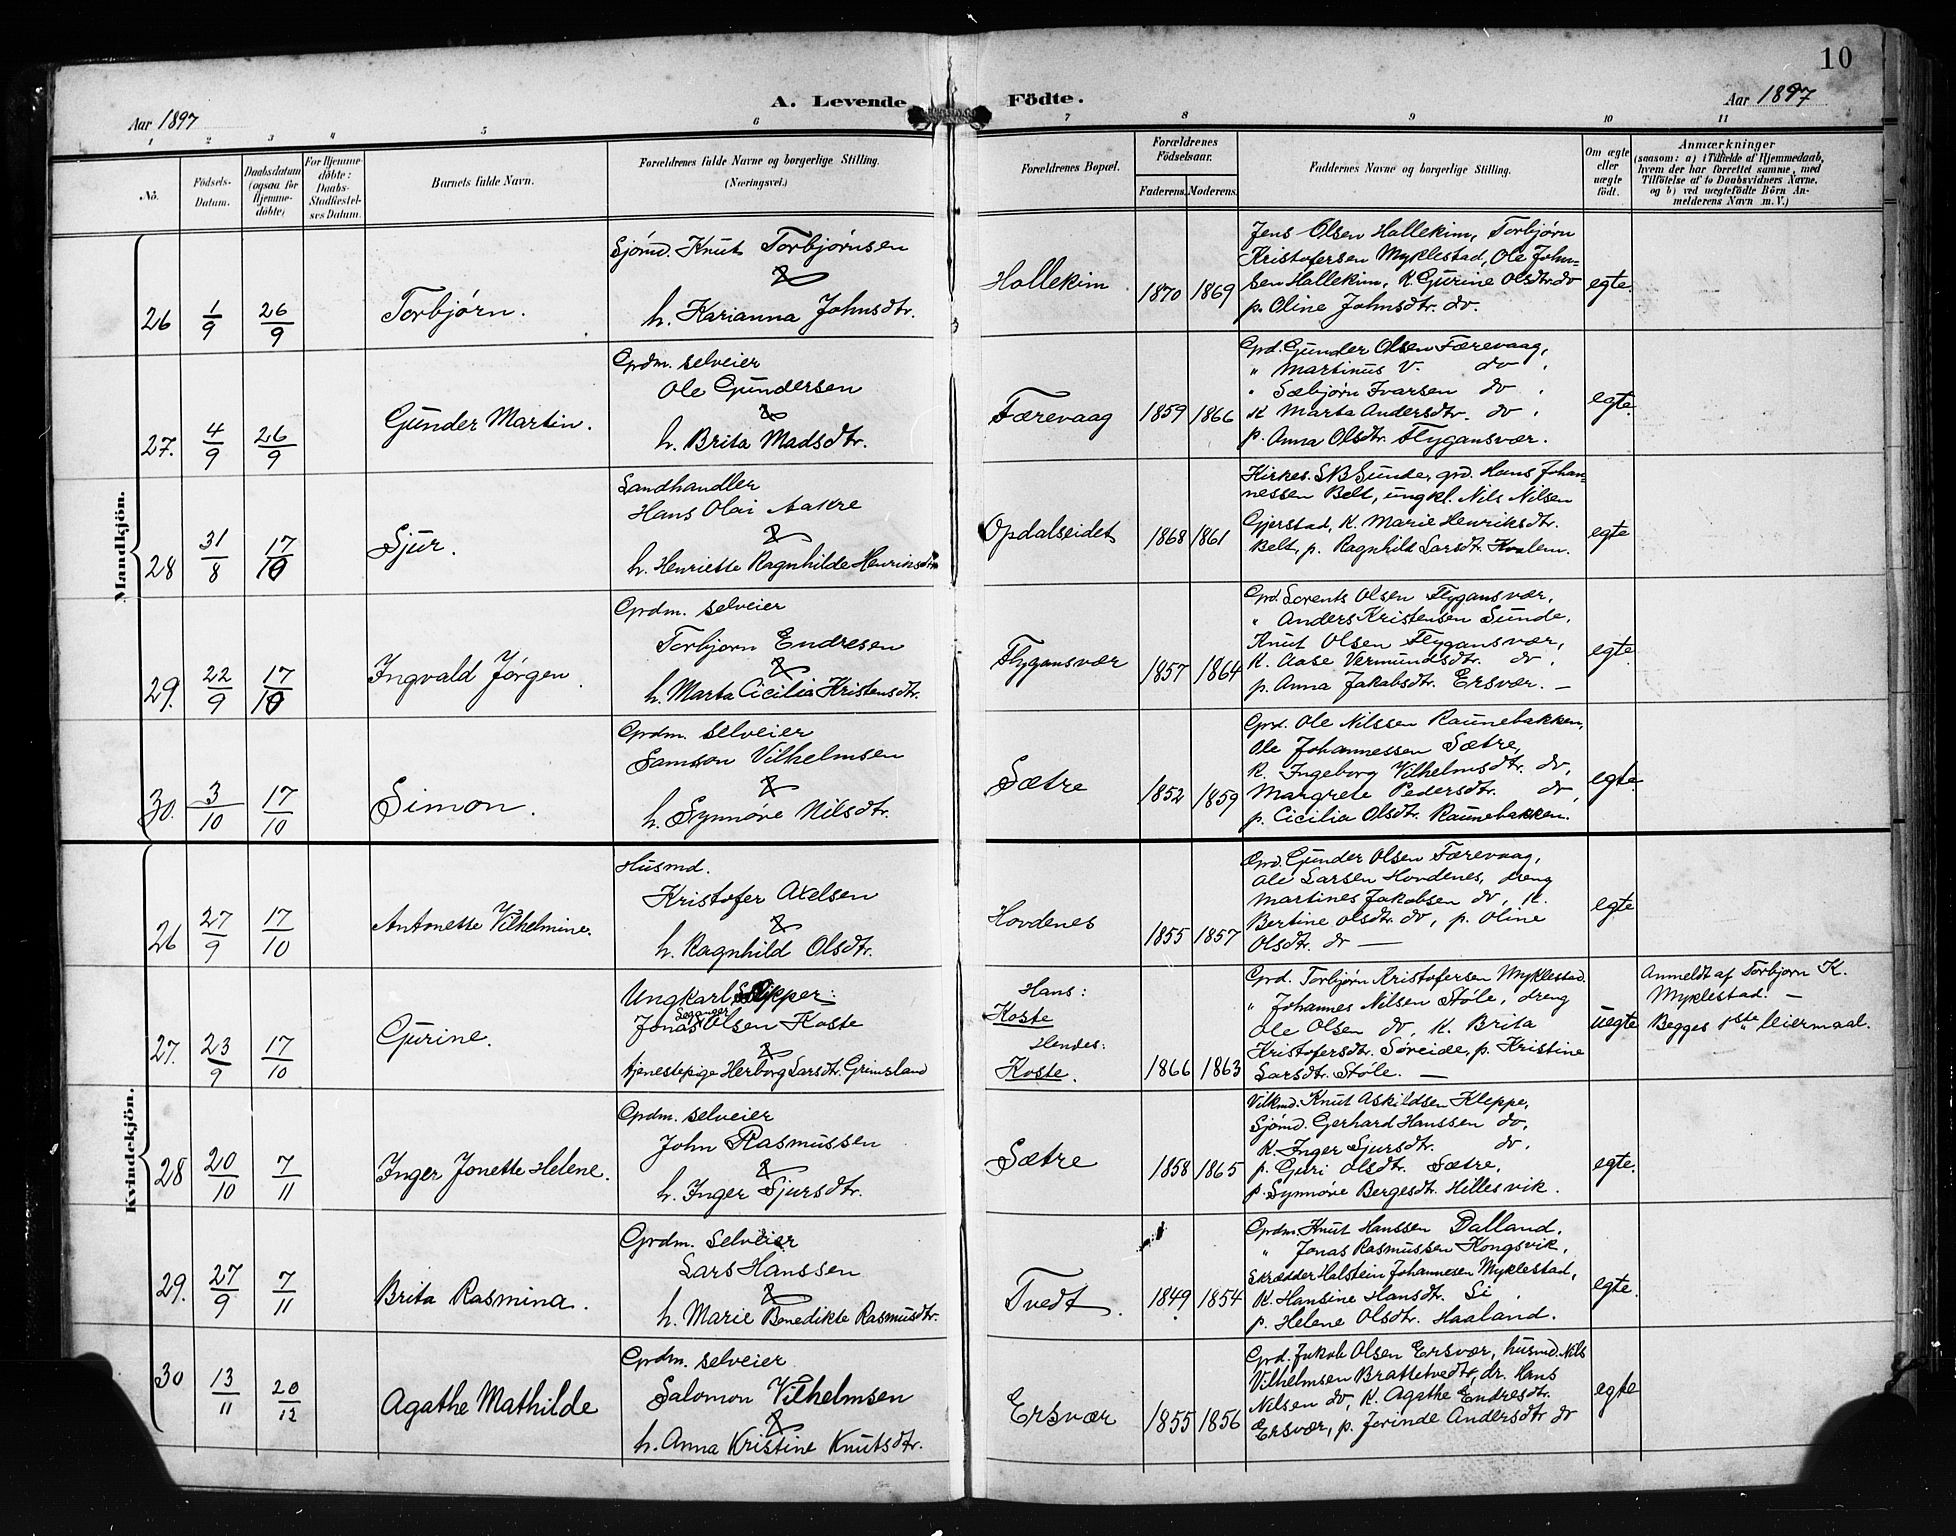 10
A. Levende Födte.
Aar 1897
Aar 1897
1 2 3 4 5 6 7 8 9 10 11
No.
Födsels-Datum.
Daabsdatum (ogsaa for Hjemmedöbte)
For Hjemmedöbte: Daabs-Stadfæstelses Datum.
Barnets fulde Navn.
Forældrenes fulde Navne og borgerlige Stilling.
(Næringsvei.)
Forældrenes Bopæl.
Forældrenes Födselsaar.
Faderens. Moderens.
Faddernes Navne og borgerlige Stilling.
Om ægte eller uægte födt.
Anmærkninger
(saasom: a) i Tilfælde af Hjemmedaab,
hvem der har forrettet samme, med
Tilföielse af to Daabsvidners Navne,
og b) ved uægtefödte Börn An-
melderens Navn m. V.)
Mandkjön.
26 1/9 26/9 Torbjørn.
Sjømd. Knut Torbjørnsen
&
h. Karianna Johnsdtr.
Hallekim 1870 1869
Jens Olsen Hallekim, Torbjørn
Kristofersen Myklestad, Ole John-
sen Hallekim, K. Gurine Olsdtr. do
p. Oline Johnsdtr. do.
egte.
27. 4/9 26/9 Gunder Martin.
Grdm. selveier
Ole Gundersen
&
h. Brita Madsdtr.
Færevaag 1859 1866
Grd. Gunder Olsen Færevaag,
" Martinus V. do ,
" Sæbjørn Ivarsen do ,
K Marta Andersdtr. do ,
p. Anna Olsdtr. Flygansvær.
egte.
28 31/8 17/10 Sjur.
Landhandler
Hans Olai Aakre
&
h. Henriette Ragnhilde Henriksdtr
Opdalseidet 1868 1861
Kirkes. SB Sunde, grd. Hans Johan-
nessen Belt, ungkl. Nils Nilsen
Gjerstad, K. Marie Henriksdtr.
Belt, p. Ragnhild Larsdtr. Kvalem.
egte
29. 22/9 17/10 Ingvald Jørgen.
Grdm. selveier
Torbjorn Endresen
&
h. Marta Cicilia Kristensdtr.
Flygansvær 1857 1864
Grd. Lorents Olsen Flygansvær,
" Anders Kristensen Sunde,
Knut Olsen Flygansvær,
K. Aase Vermundsdtr. do ,
p. Anna Jakobsdtr. Ersvær. —
egte.
30. 3/10 17/10 Simon.
Grdm. selveier
Samson Vilhelmsen
&
h. Synnøve Nilsdtr.
Sætre 1852 1859
Grd. Ole Nilssen Raunebakken,
Ole Johannessen Sætre,
K. Ingeborg Vilhelmsdtr. do,
Margrete Pedersdtr. do,
p. Cicilia Olsdtr. Raunebakken.
egte
Kvindekjön.
26 27/9 17/10 Antonette Vilhelmine.
Husmd.
Kristofer Axelsen
&
h. Ragnhild Olsdtr.
Hovdenes 1855 1857
Grd. Gunder Olsen Færevaag,
Ole Larsen Hovdenes, dreng
Martines Jakobsen do, K.
Bertine Olsdtr. do, p. Oline
Olsdtr. do —
egte
27. 23/9 17/10 Gurine.
Ungkarl Skipper:
Jonas Olsen Koste
&
tjenestepige Herborg Larsdtr. Grimsland
Hans:
Koste
Hendes:
Koste. 1866 1863
Grd. Torbjørn Kristofersen Myklestad
" Johannes Nilsen Støle, dreng
Ole Olsen do, K. Brita
Kristofersdtr. Søreide, p. Kristine
Larsdtr. Støle. —
uegte
Anmeldt af Torbjorn K.
Myklestad. —
Begges 1ste leiermaal.
28 20/10 7/11 Inger Jonette Helene.
Grdm. selveier
John Rasmussen
&
h. Inger Sjursdtr.
Sætre 1858 1865
Vilkmd. Knut Askildsen Kleppe,
Sjømd. Gerhard Hanssen do,
K. Inger Sjursdtr. do.
p. Guri Olsdtr. Sætre,
p. Synnøve Bergesdtr. Hillesvik.
egte.
29. 27/9 7/11 Brita Rasmina.
Grdm. selveier
Lars Hanssen
&
h. Marie Benedikte Rasmusdtr.
Tvedt. 1849 1854
Grdm. Knut Hanssen Dalland,
" Jonas Rasmussen Kongsvik,
Skrædder Halstein Johannesen Myklestad,
K. Hansine Hansdtr. Li ,
p. Helene Olsdtr. Haaland.
egte.
30 13/11 20/12 Agathe Mathilde
Grdm. selveier
Salomon Vilhelmsen
&
h. Anna Kristine Knutsdtr.
Ersvær 1855 1856
Grd. Jakob Olsen Ersvær, husmd. Nils
Vilhelmsen Brattetvedt, dr. Hans
Nilsen do, K. Agathe Endresdtr.
Ersvær, p. Jorinde Andersdtr do
egte